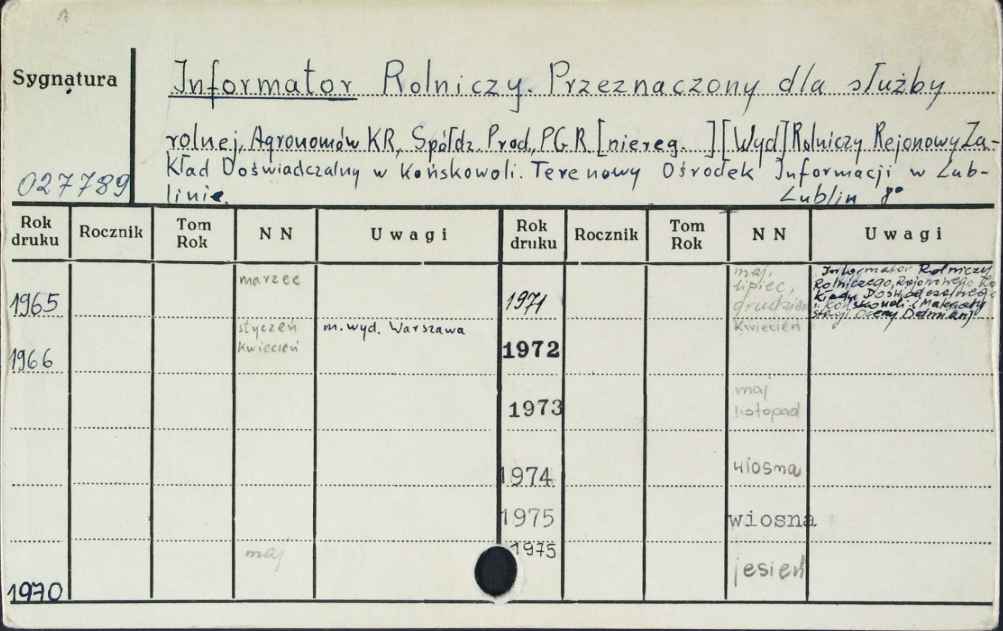 Sygnatura
Informator Rolniczy. Przeznaczony dla służby
rolnej, Agronomów KR, Spółdz. Prod., PGR. [niereg. ] [Wyd] Rolniczy Rejonowy Za-
kład Doświadczalny w Końskowoli. Terenowy Ośrodek Informacji w Lub-
027789
linie. Lublin 8°
Rok druku Rocznik Tom Rok N N Uwagi Rok druku Rocznik Tom Rok N N Uwagi
1965 marzec
1966 styczeń kwiecień m. wyd. Warszawa
1970 maj
1971 maj, lipiec, grudzień Informator Rolniczy
Rolniczego, Rejonowego Za-
kładu Doświadczalnego
w Końskowoli (Materiały
Oceny Odmian)
1972 kwiecień
1973 maj listopad
1974 wiosna
1975 wiosna
1975 jesień